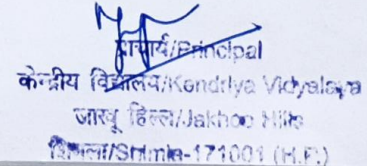 प्राचार्य/Principal
केन्द्रीय विद्यालय/Kendriya Vidyalaya
जाखू हिल्स/Jakhoo Hills
शिमला/Shimla-171001 (H.P.)